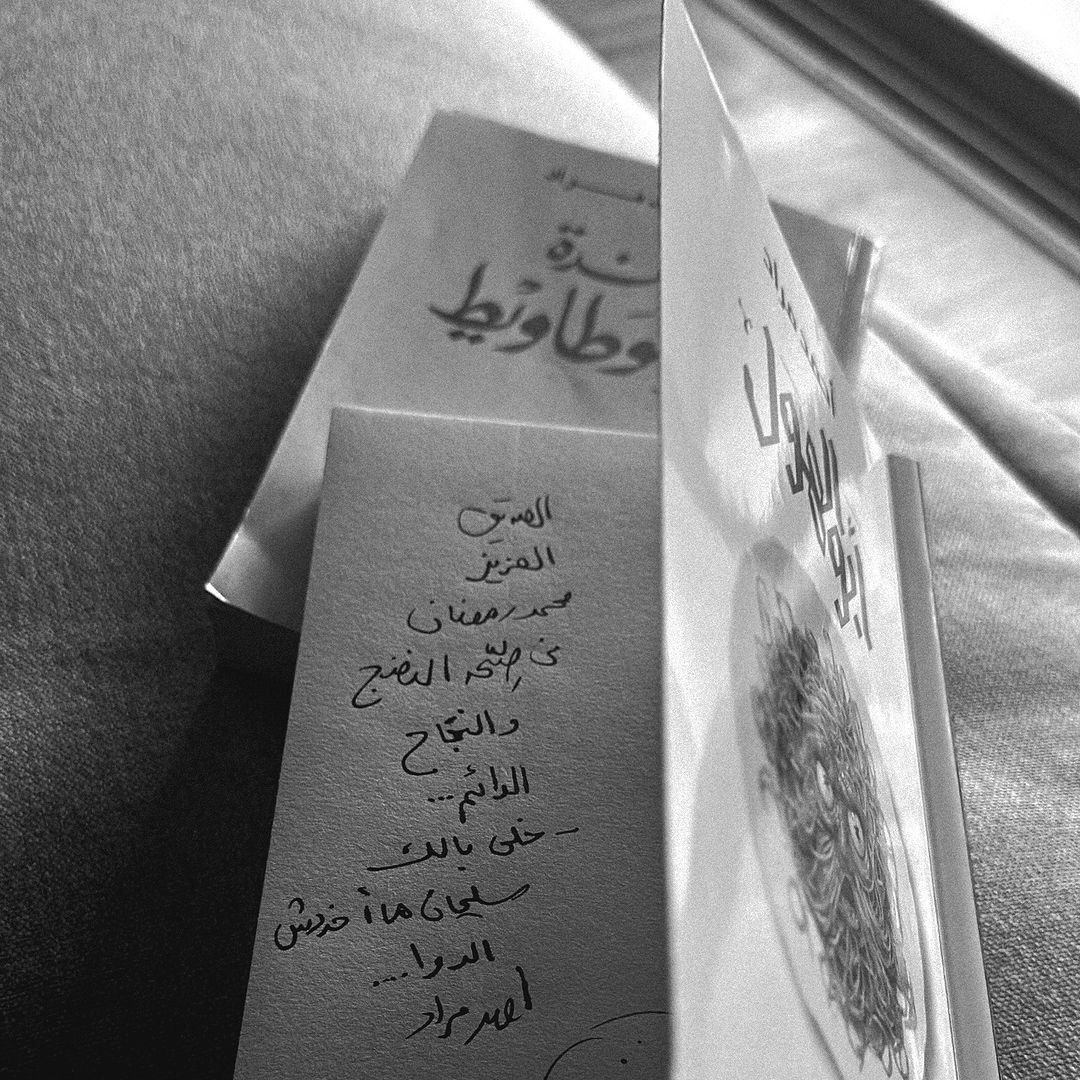 مراد
ندة
وطاويط
الصديق
العزيز
محمد رمضان
فى صِحّة النضج
والنجاح
الدائم...
- خلى بالك
سليمان ما أخدش
الدوا....
أحمد مراد
أبو الهول